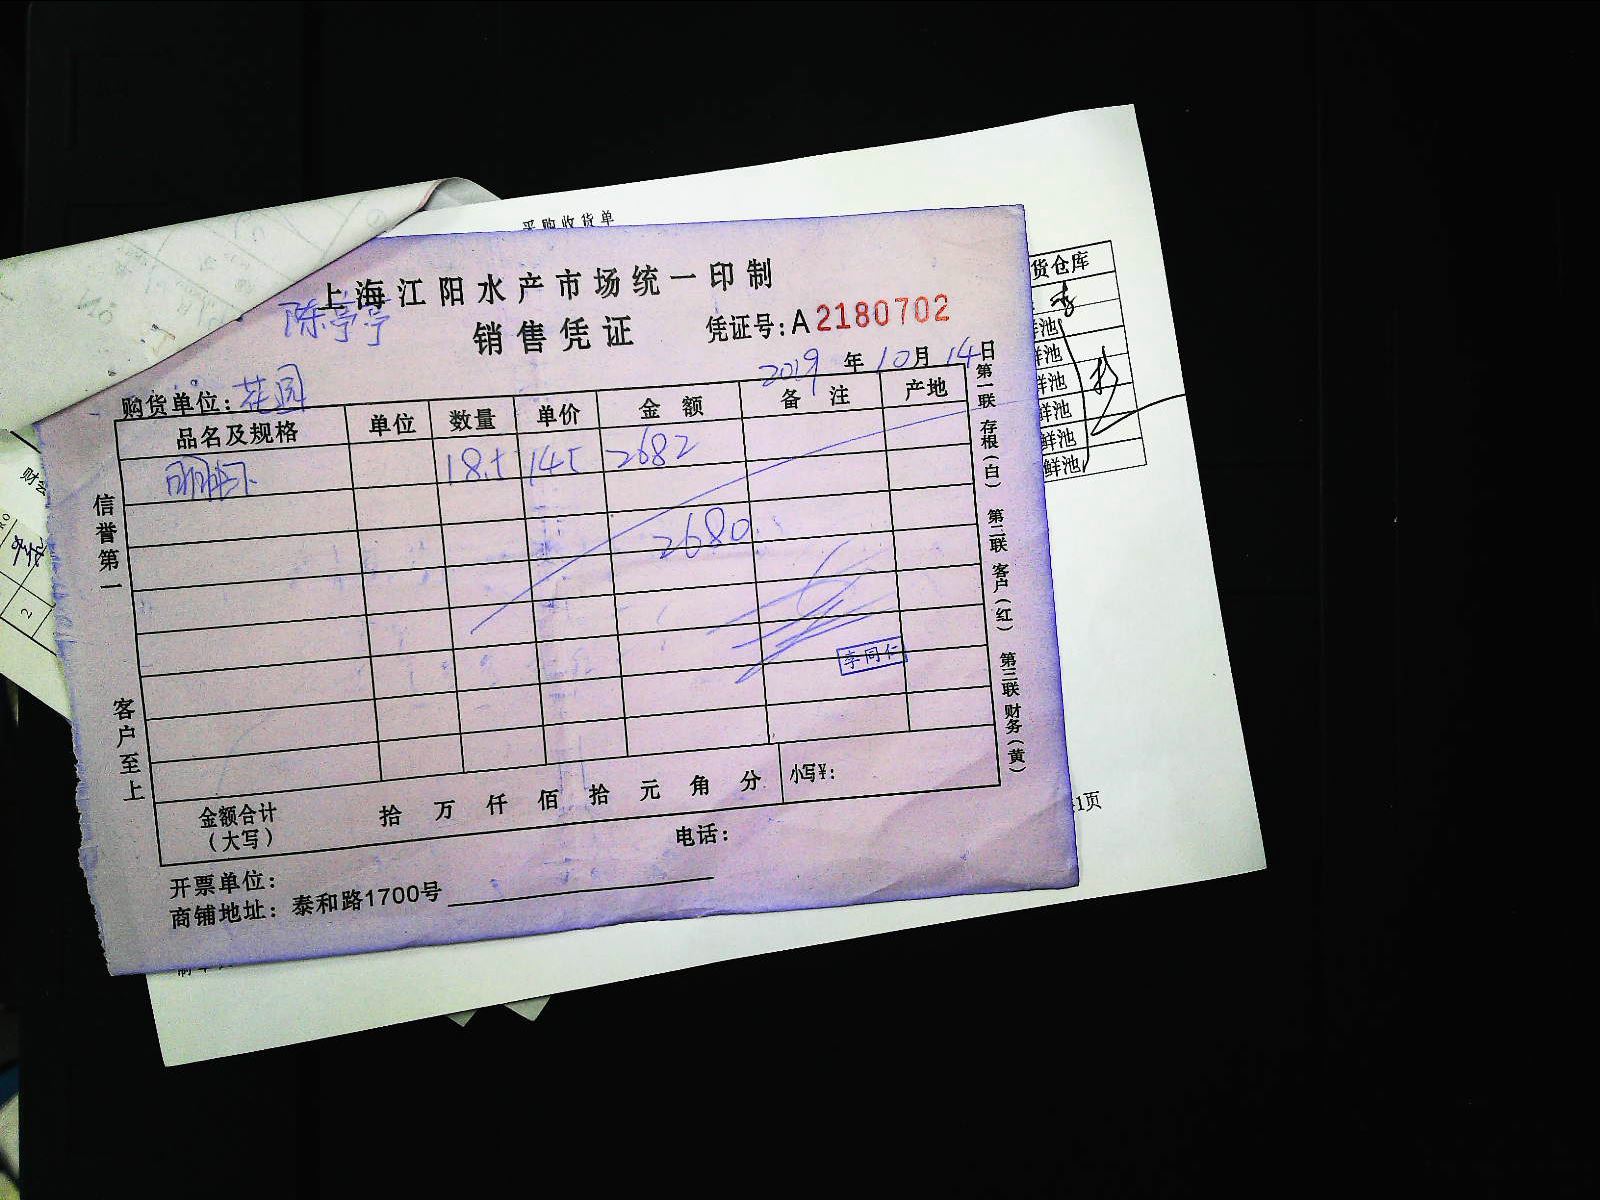 采购收货单
上海江阳水产市场统一印制
陈亭亭
销售凭证 凭证号:A2180702
2019年10月14日
购货单位:花园
品名及规格 单位 数量 单价 金额 备注 产地
明虾 18.5 145 2682
2680
李同仁
金额合计(大写) 拾万仟佰拾元角分 小写¥:
电话:
开票单位:
商铺地址:泰和路1700号
信誉第一
客户至上
第一联 存根(白) 第二联 客户(红) 第三联 财务(黄)
货仓库
鲜池
鲜池
鲜池
鲜池
鲜池
1页
2